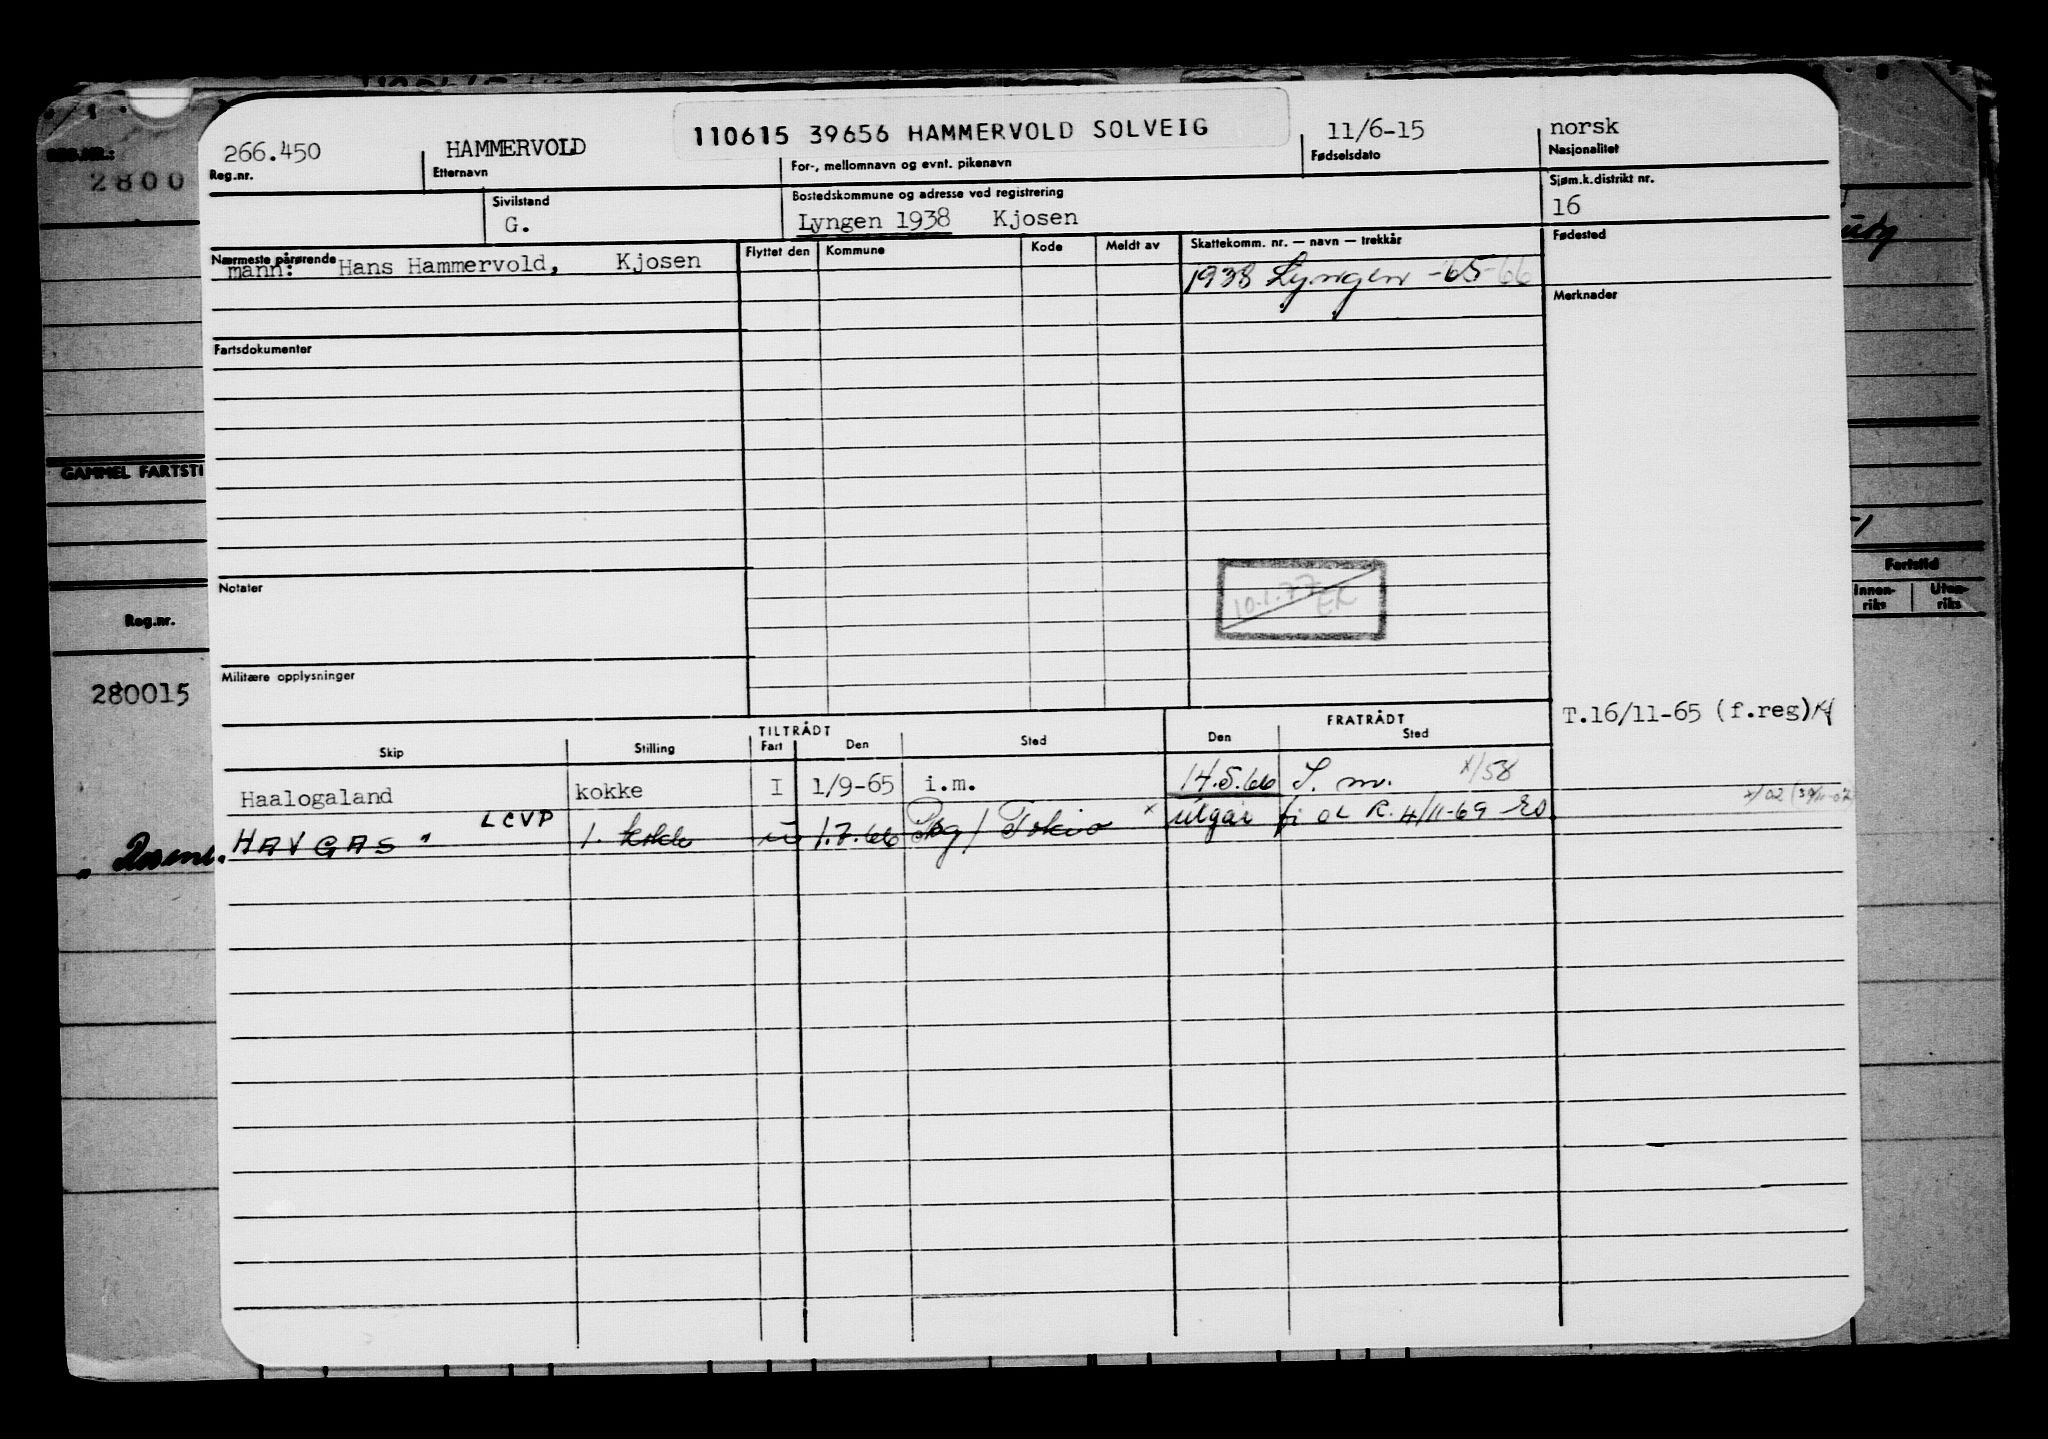 110615 39656 HAMMERVOLD SOLVEIG
266.450 HAMMERVOLD 11/6-15 norsk
Reg.nr. Etternavn For-, mellomnavn og evnt. pikenavn Fødselsdato Nasjonalitet
Sivilstand Bostedskommune og adresse ved registrering Sjøm.k.distrikt nr.
G. Lyngen 1938 Kjosen 16
Nærmeste pårørende Flyttet den Kommune Kode Meldt av Skattekomm. nr. — navn — trekkår Fødested
mann: Hans Hammervold, Kjosen
1938 Lyngen -65-66
Merknader
Fartsdokumenter
10.1.77 EK
Notater
Militære opplysninger
T.16/11-65 (f.reg)
TILTRÅDT FRATRÅDT
Skip Stilling Fart Den Sted Den Sted
Haalogaland kokke I 1/9-65 i.m. 14.5.66 S. m. x/58
HAVGAS" LCVP 1. kokke u 1.7.66 / Tokio x utgår fi R. 4/11-69
REG.NR.:
2800
GAMMEL FARTSTI
Reg.nr.
280015
Fartstid
Innen-riks Uten-riks